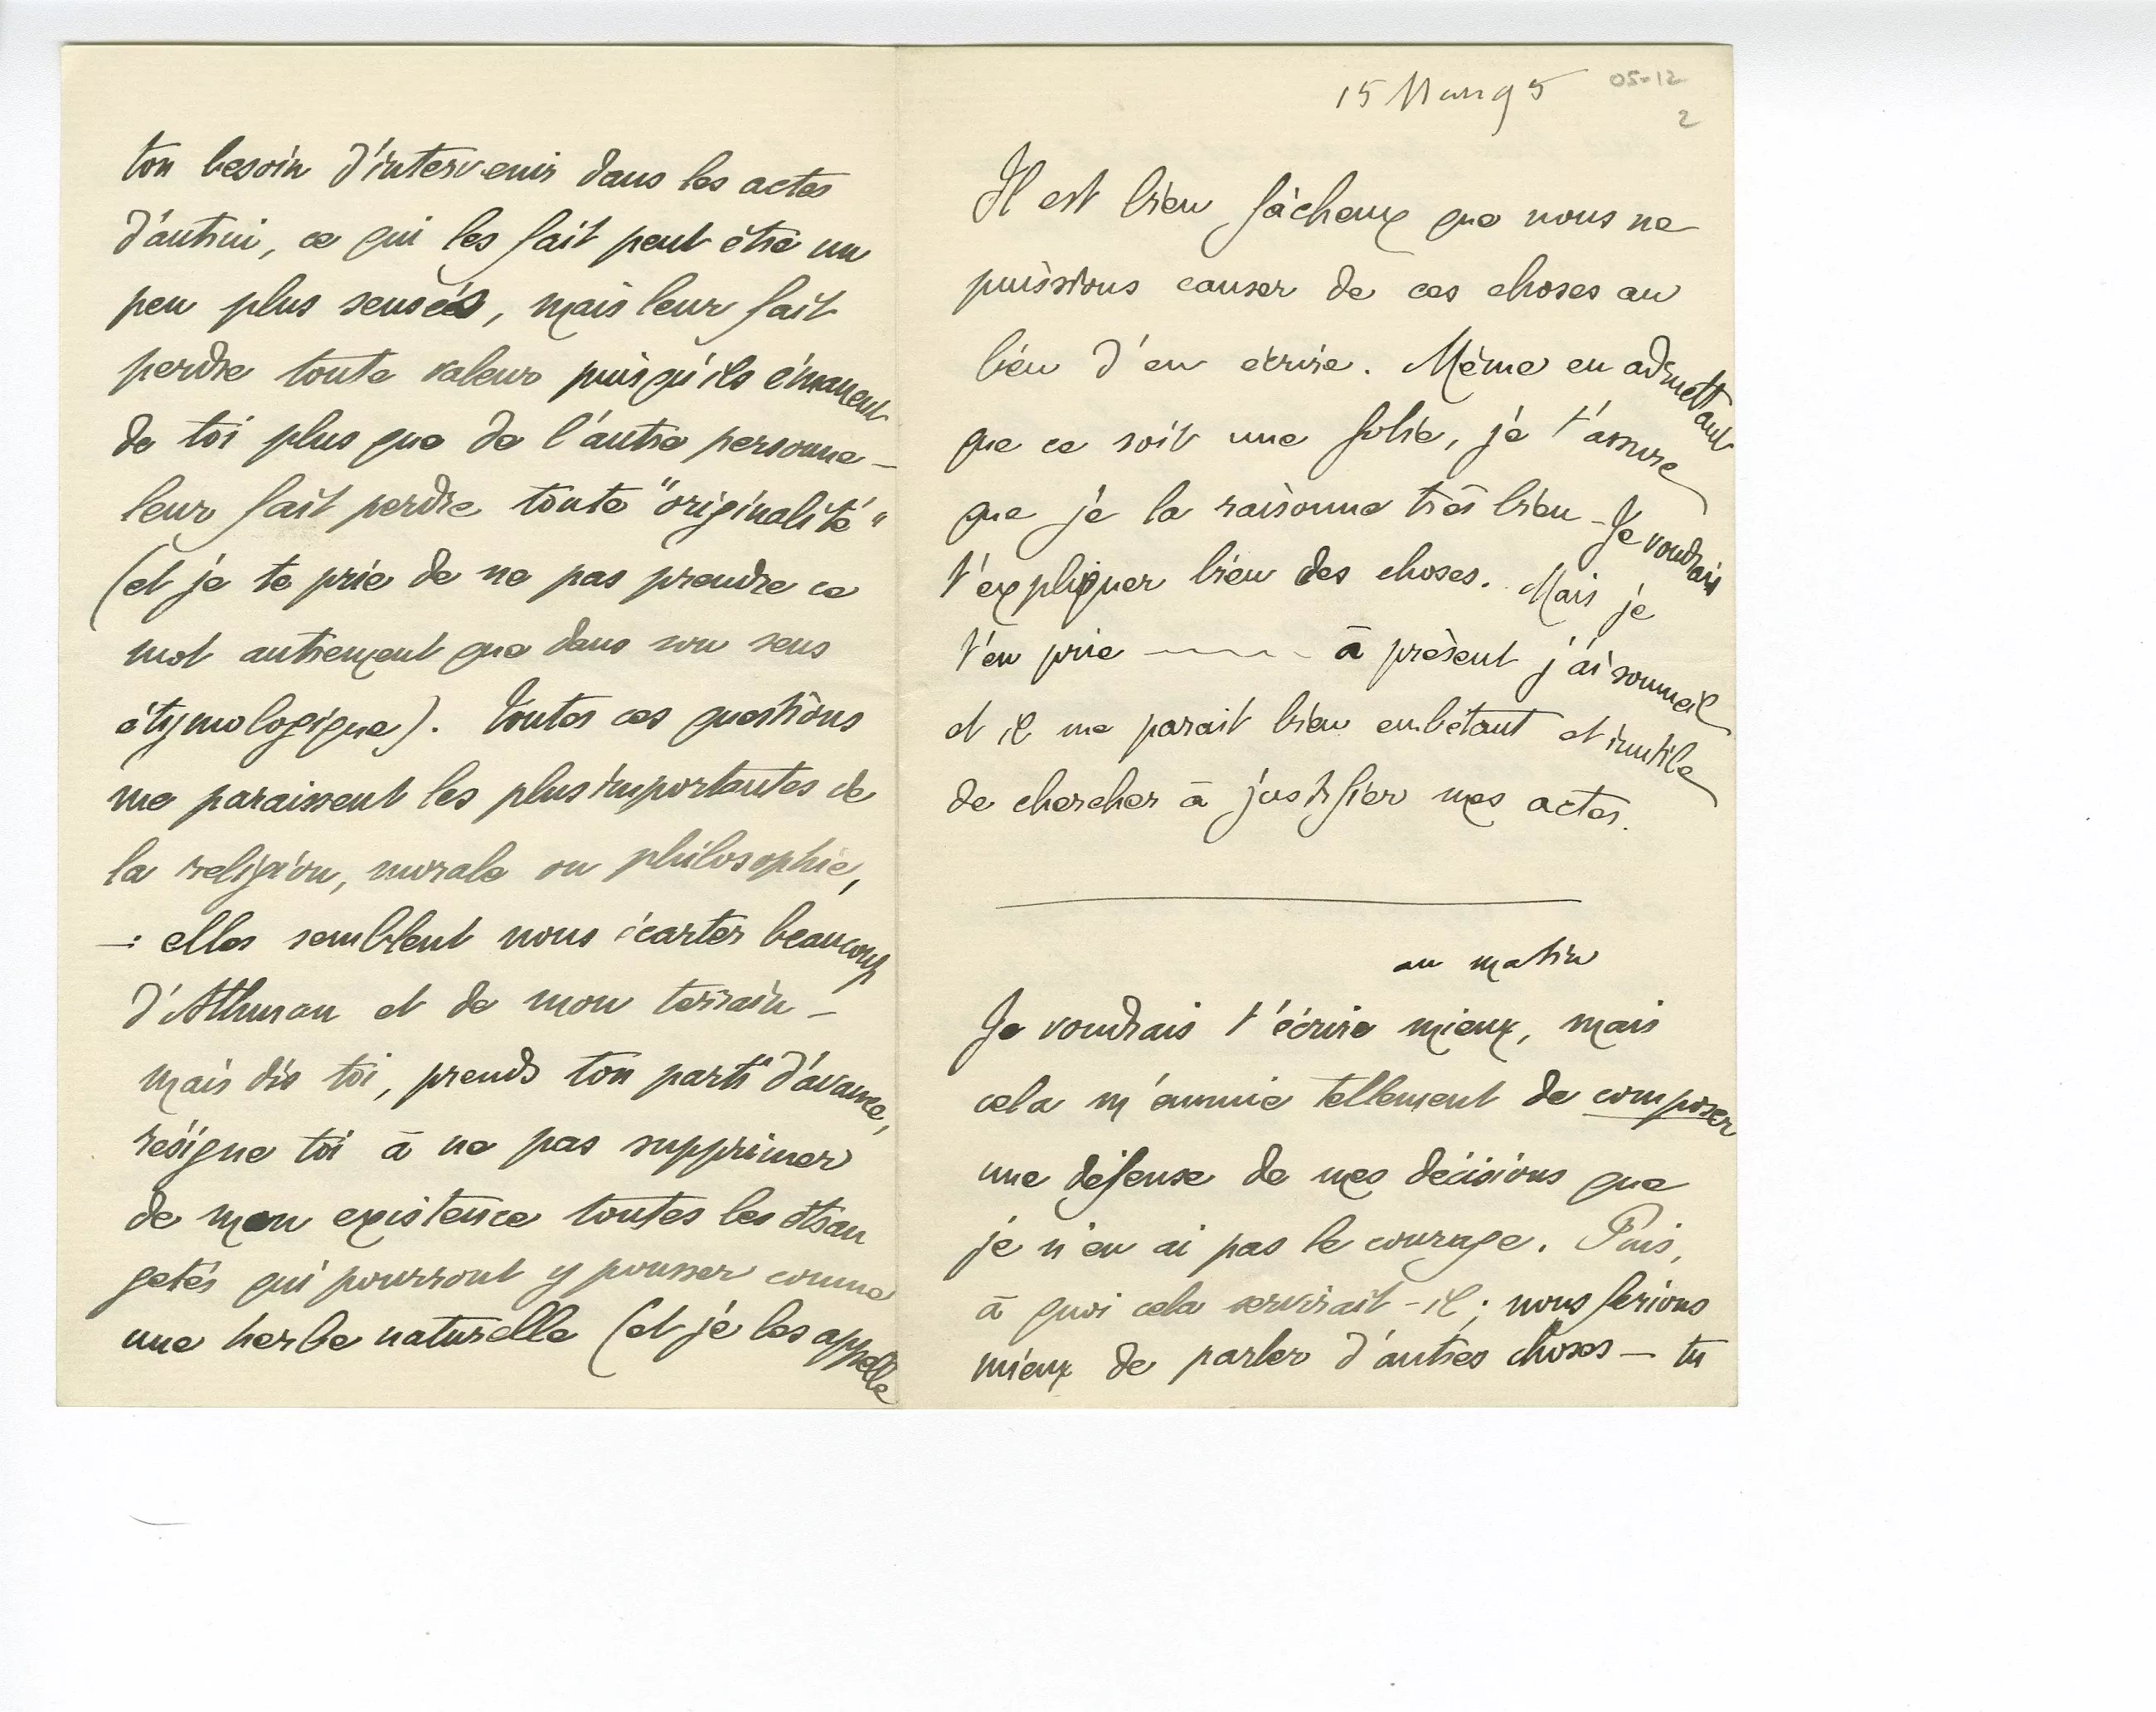 ton besoin d'intervenir dans les actes
d'autrui, ce qui les fait peut être un
peu plus sensés, mais leur fait
perdre toute valeur puisqu'ils émanent
de toi plus que de l'autre personne —
leur fait perdre toute "originalité"
(et je te prie de ne pas prendre ce
mot autrement que dans son sens
étymologique). Toutes ces questions
me paraissent les plus importantes de
la religion, morale ou philosophie,
—: elles semblent nous écarter beaucoup
d'Athman et de mon terrain —
mais dis toi, prends ton parti d'avance,
résigne toi à ne pas supprimer
de mon existence toutes les étran
getés qui pourront y pousser comme
une herbe naturelle (et je les appelle
15 Mars 95
05-12
2
Il est bien fâcheux que nous ne
puissions causer de ces choses au
lieu d'en écrire. Même en admettant
que ce soit une folie, je t'assure
que je la raisonne très bien — Je voudrais
t'expliquer bien des choses. Mais je
t'en prie — à présent j'ai sommeil
et il me parait bien embêtant et inutile
de chercher à justifier mes actes.
au matin
Je voudrais t'écrire mieux, mais
cela m'ennuie tellement de composer
une défense de mes décisions que
je n'en ai pas le courage. Puis,
à quoi cela servirait-il; nous ferions
mieux de parler d'autres choses — tu